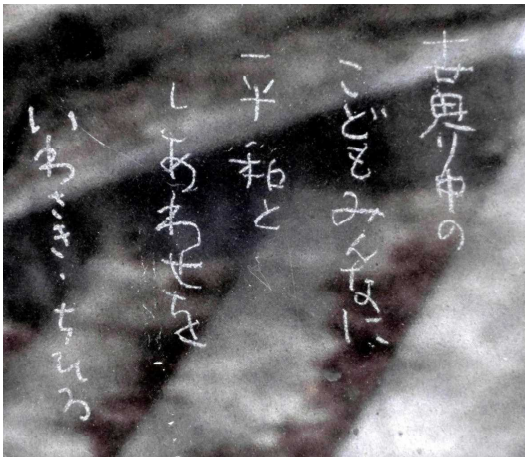 世界中の
こどもみんなに
平和と
しあわせを
いわさき・ちひろ